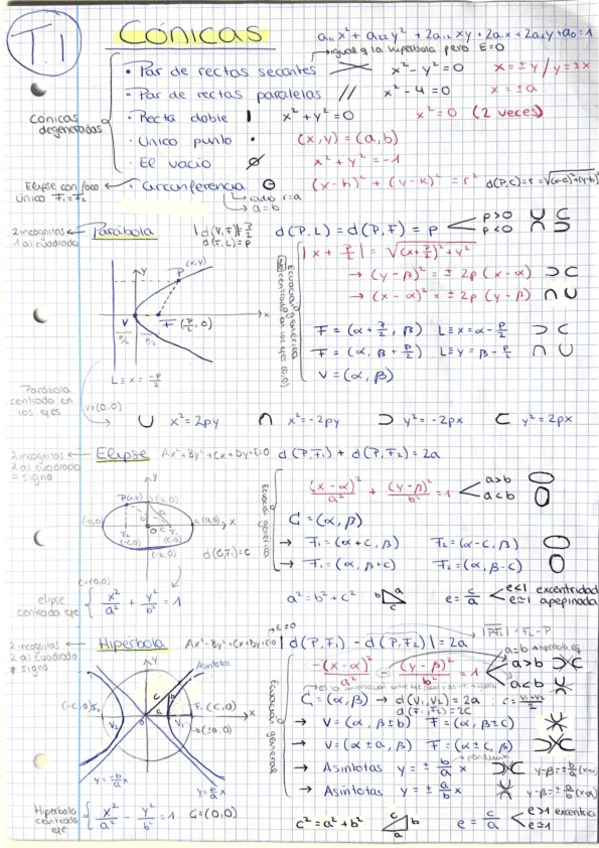 T.1
CÓNICAS
a₁₁x² + a₂₂y² + 2a₁₂xy + 2a₁x + 2a₂y + a₀ = 1
igual q la hipérbola pero E=0
Cónicas degeneradas
• Par de rectas secantes x² - y² = 0 x = ± y / y = ± x
• Par de rectas paralelas // x² - 4 = 0 x = ± a
• Recta doble x² + y² = 0 x² = 0 (2 veces)
• Único punto • (x, y) = (a, b)
• El vacío ∅ x² + y² = -1
Elipse con foco único F₁=F₂
• Circunferencia (x-h)² + (y-k)² = r²
radio r=a
→ a=b
2 incógnitas
1 al cuadrado
Parábola
d(P, L) = d(P, F) = p
p>0
p<0
d(F, L) = p
|x + p/2| = √(x + p/2)² + y²
→ (y-β)² = ± 2p (x-α)
→ (x-α)² = ± 2p (y-β)
P (x,y)
y
x
V
F (p/2, 0)
L≡x = -p/2
F = (α + p/2, β) L≡x = α - p/2
F = (α, β + p/2) L≡y = β - p/2
V = (α, β)
Parábola centrada en los ejes
V=(0,0)
∪ x² = 2py ∩ x² = -2py ⊃ y² = -2px ⊂ y² = 2px
2 incógnitas
2 al cuadrado
= signo
Elipse
Ax² + By² + Cx + Dy + E = 0
d(P, F₁) + d(P, F₂) = 2a
Ecuación general
(x-α)²/a² + (y-β)²/b² = 1
a>b
a<b
C = (α, β)
→ F₁ = (α+c, β) F₂ = (α-c, β)
→ F₁ = (α, β+c) F₂ = (α, β-c)
P(x,y)
(b,0)
(-b,0)
d(C,F₁)=c
C=(0,0)
elipse centrada eje
x²/a² + y²/b² = 1
a² = b² + c²
b
a
c
e = c/a
e<1 excentricidad
e≃1 apepinada
2 incógnitas
2 al cuadrado
≠ signo
Hipérbola
Ax² - By² + Cx + Dy + E = 0
E≠0
|d(P, F₁) - d(P, F₂)| = 2a
Ecuación general
-(x-α)²/a² = (y-β)²/b² = 1
a>b
a<b
C = (α, β) → d(V₁, V₂) = 2a
d(F₁, F₂) = 2c
→ V = (α, β±b) F = (α, β±c)
→ V = (α±a, β) F = (α±c, β)
→ Asíntotas y = ± b/a x
→ Asíntotas y = ± a/b x
Asíntota
y
x
F₁ (C,0)
V₂
V₁
y = -b/a x
y = b/a x
Hipérbola centrada eje
x²/a² - y²/b² = 1 C = (0,0)
c² = a² + b²
c
b
a
e = c/a
e>1
e≃1